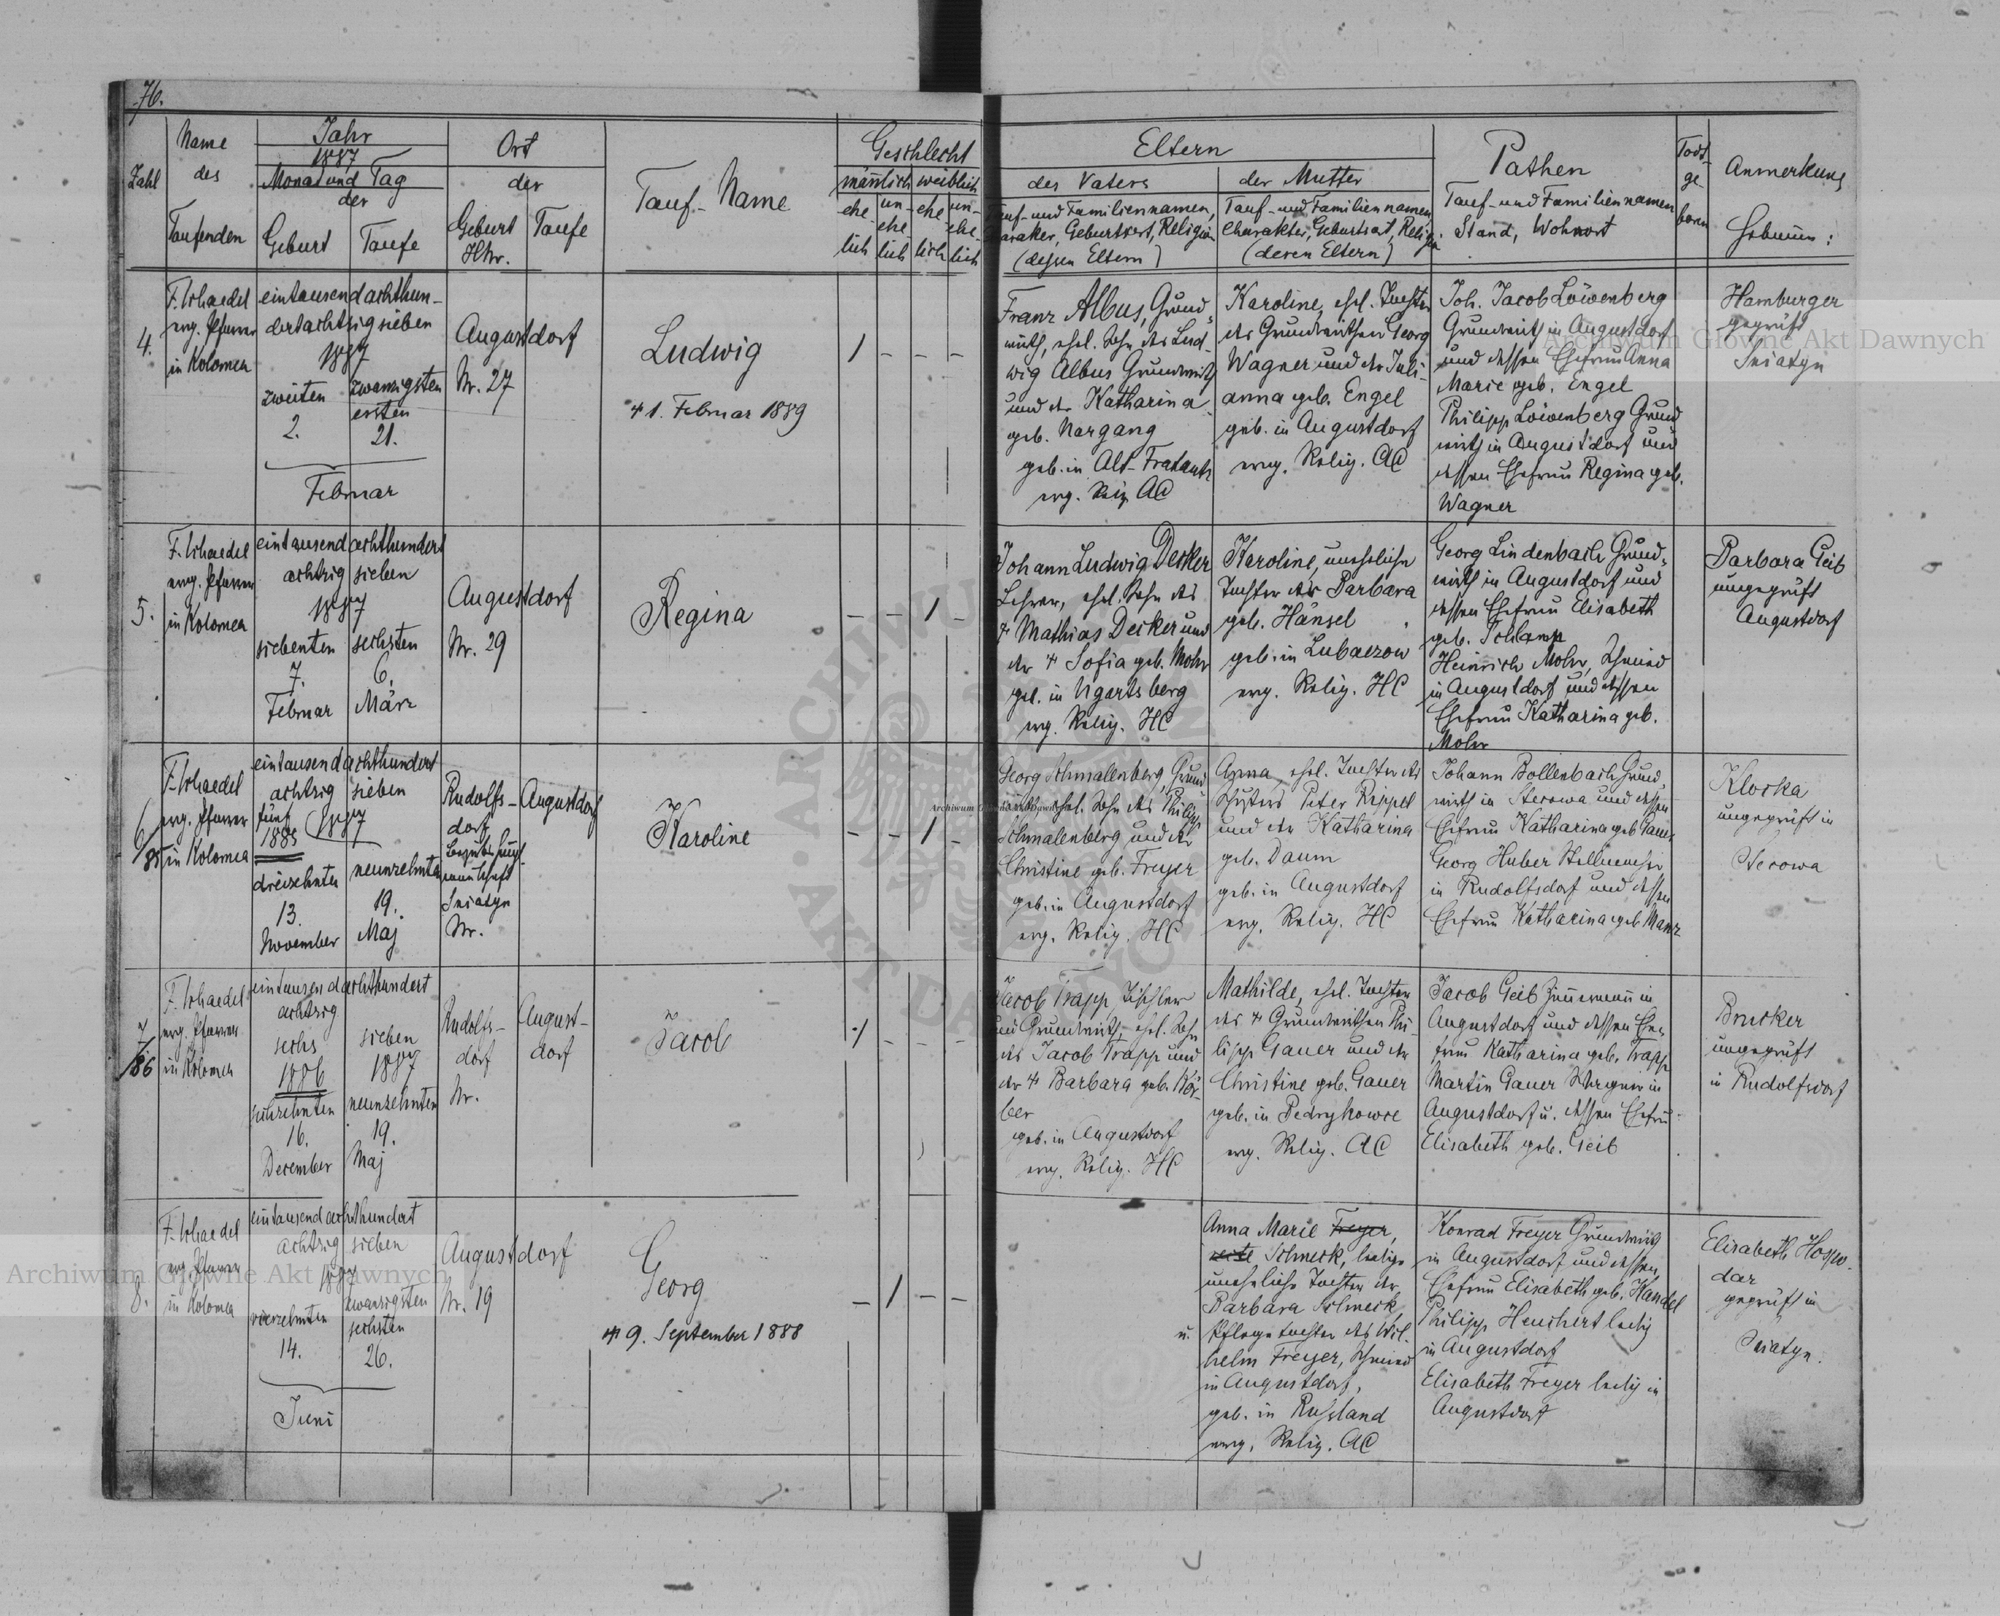 76.
Zahl
Name
des
Taufenden
Jahr
1887
Monat und Tag
der
Geburt
Taufe
Ort
der
Geburt
HNr.
Taufe
Tauf-Name
Geschlecht
männlich
weiblich
ehe-
lich
un-
ehe-
lich
ehe-
lich
un-
ehe-
lich
Eltern
des Vaters
Tauf- und Familiennamen,
Charakter, Geburtsort, Religion
(dessen Eltern)
der Mutter
Tauf- und Familiennamen
Charakter, Geburtsort, Religion
(deren Eltern)
Pathen
Tauf- und Familiennamen
Stand, Wohnort
Todt-
ge-
boren
Anmerkung
Hebamme:
4.
F. Schaedel
evg. Pfarrer
in Kolomea
eintausendachthun-
dertachtzigsieben
1887
zweiten
2.
zwanzigsten
ersten
21.
Februar
Augustdorf
Nr. 27
Ludwig
1 - - -
1. Februar 1889
Franz Albus, Grund-
wirth, ehel. Sohn des Lud-
wig Albus Grundwirth
und der Katharina
geb. Nargang
geb. in Alt-Fratautz
evg. Relig. AC
Karoline, ehel. Tochter
des Grundwirthen Georg
Wagner und der Juli-
anna geb. Engel
geb. in Augustdorf
evg. Relig. AC
Joh. Jacob Löwenberg
Grundwirth in Augustdorf
und dessen Ehefrau Anna
Marie geb. Engel
Philipp Löwenberg Grund
wirth in Augustdorf und
dessen Ehefrau Regina geb.
Wagner
Hamburger
geprüft
Sniatyn
5.
F. Schaedel
evg. Pfarrer
in Kolomea
eintausendachthundert
achtzig sieben
1887
siebenten
7.
Februar
sechsten
6.
März
Augustdorf
Nr. 29
Regina
- - 1 -
Johann Ludwig Decker
Lehrer, ehel. Sohn des
Mathias Decker und
der Sofia geb. Mohr
geb. in Ugartsberg
evg. Relig. HC
Karoline, uneheliche
Tochter der Barbara
geb. Hänsel
geb. in Lubaczow
evg. Relig. HC
Georg Lindenbach Grund-
wirth in Augustdorf und
dessen Ehefrau Elisabeth
geb. Schlamp
Heinrich Mohr, Schmied
in Augustdorf und dessen
Ehefrau Katharina geb.
Mohr
Barbara Geib
ungeprüft
Augustdorf
6/85
F. Schaedel
evg. Pfarrer
in Kolomea
eintausendachthundert
achtzig sieben
fünf 1887
1885
dreizehnten
13.
November
neunzehnten
19.
Maj
Rudolfs-
dorf
Bezirkshaupt-
mannschaft
Sniatyn
Nr.
Augustdorf
Karoline
- - 1 -
Georg Schmalenberg, Grund
wirth, ehel. Sohn des Philipp
Schmalenberg und der
Christine geb. Freyer
geb. in Augustdorf
evg. Relig. HC
Anna, ehel. Tochter des
Schusters Peter Rippel
und der Katharina
geb. Daum
geb. in Augustdorf
evg. Relig. HC
Johann Bollenbach Grund
wirth in Stecowa und dessen
Ehefrau Katharina geb.
Georg Huber
in Rudolfsdorf und dessen
Ehefrau Katharina geb. Manz
Klocka
ungeprüft in
Stecowa
7/86
F. Schaedel
evg. Pfarrer
in Kolomea
eintausendachthundert
achtzig
sechs
1886
sechzehnten
16.
December
sieben
1887
neunzehnten
19.
Maj
Rudolfs-
dorf
Nr.
August-
dorf
Jacob
1 - - -
Jacob Trapp Tischler
und Grundwirth, ehel. Sohn
des Jacob Trapp und
der Barbara geb. Kör-
ber
geb. in Augustdorf
evg. Relig. HC
Mathilde, ehel. Tochter
des Grundwirthen Phi-
lipp Gauer und der
Christine geb. Gauer
geb. in Pedrykowce
evg. Relig. AC
Jacob Geib Zimmermann in
Augustdorf und dessen Ehe-
frau Katharina geb. Trapp
Martin Gauer Wagner in
Augustdorf u. dessen Ehefrau
Elisabeth geb. Geib
Brucker
ungeprüft
in Rudolfsdorf
8.
F. Schaedel
evg. Pfarrer
in Kolomea
eintausendachthundert
achtzig sieben
1887
vierzehnten
14.
zwanzigsten
sechsten
26.
Juni
Augustdorf
Nr. 19
Georg
- 1 - -
9. September 1888
Anna Marie Freyer,
recte Schmeck, ledige
uneheliche Tochter der
Barbara Schmeck
u. Pflegetochter des Wil-
helm Freyer, Schmied
in Augustdorf,
geb. in Russland
evg. Relig. AC
Konrad Freyer Grundwirth
in Augustdorf und dessen
Ehefrau Elisabeth geb. Handel
Philipp Heuchert ledig
in Augustdorf
Elisabeth Freyer ledig in
Augustdorf
Elisabeth Hospo-
dar
geprüft in
Sniatyn.
Archiwum Główne Akt Dawnych
Archiwum Główne Akt Dawnych